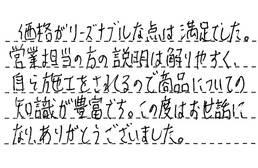 価格がリーズナブルな点は満足でした。
営業担当の方の説明は解りやすく、
自ら施工をされてるので商品についての
知識が豊富です。この度はお世話に
なり、ありがとうございました。